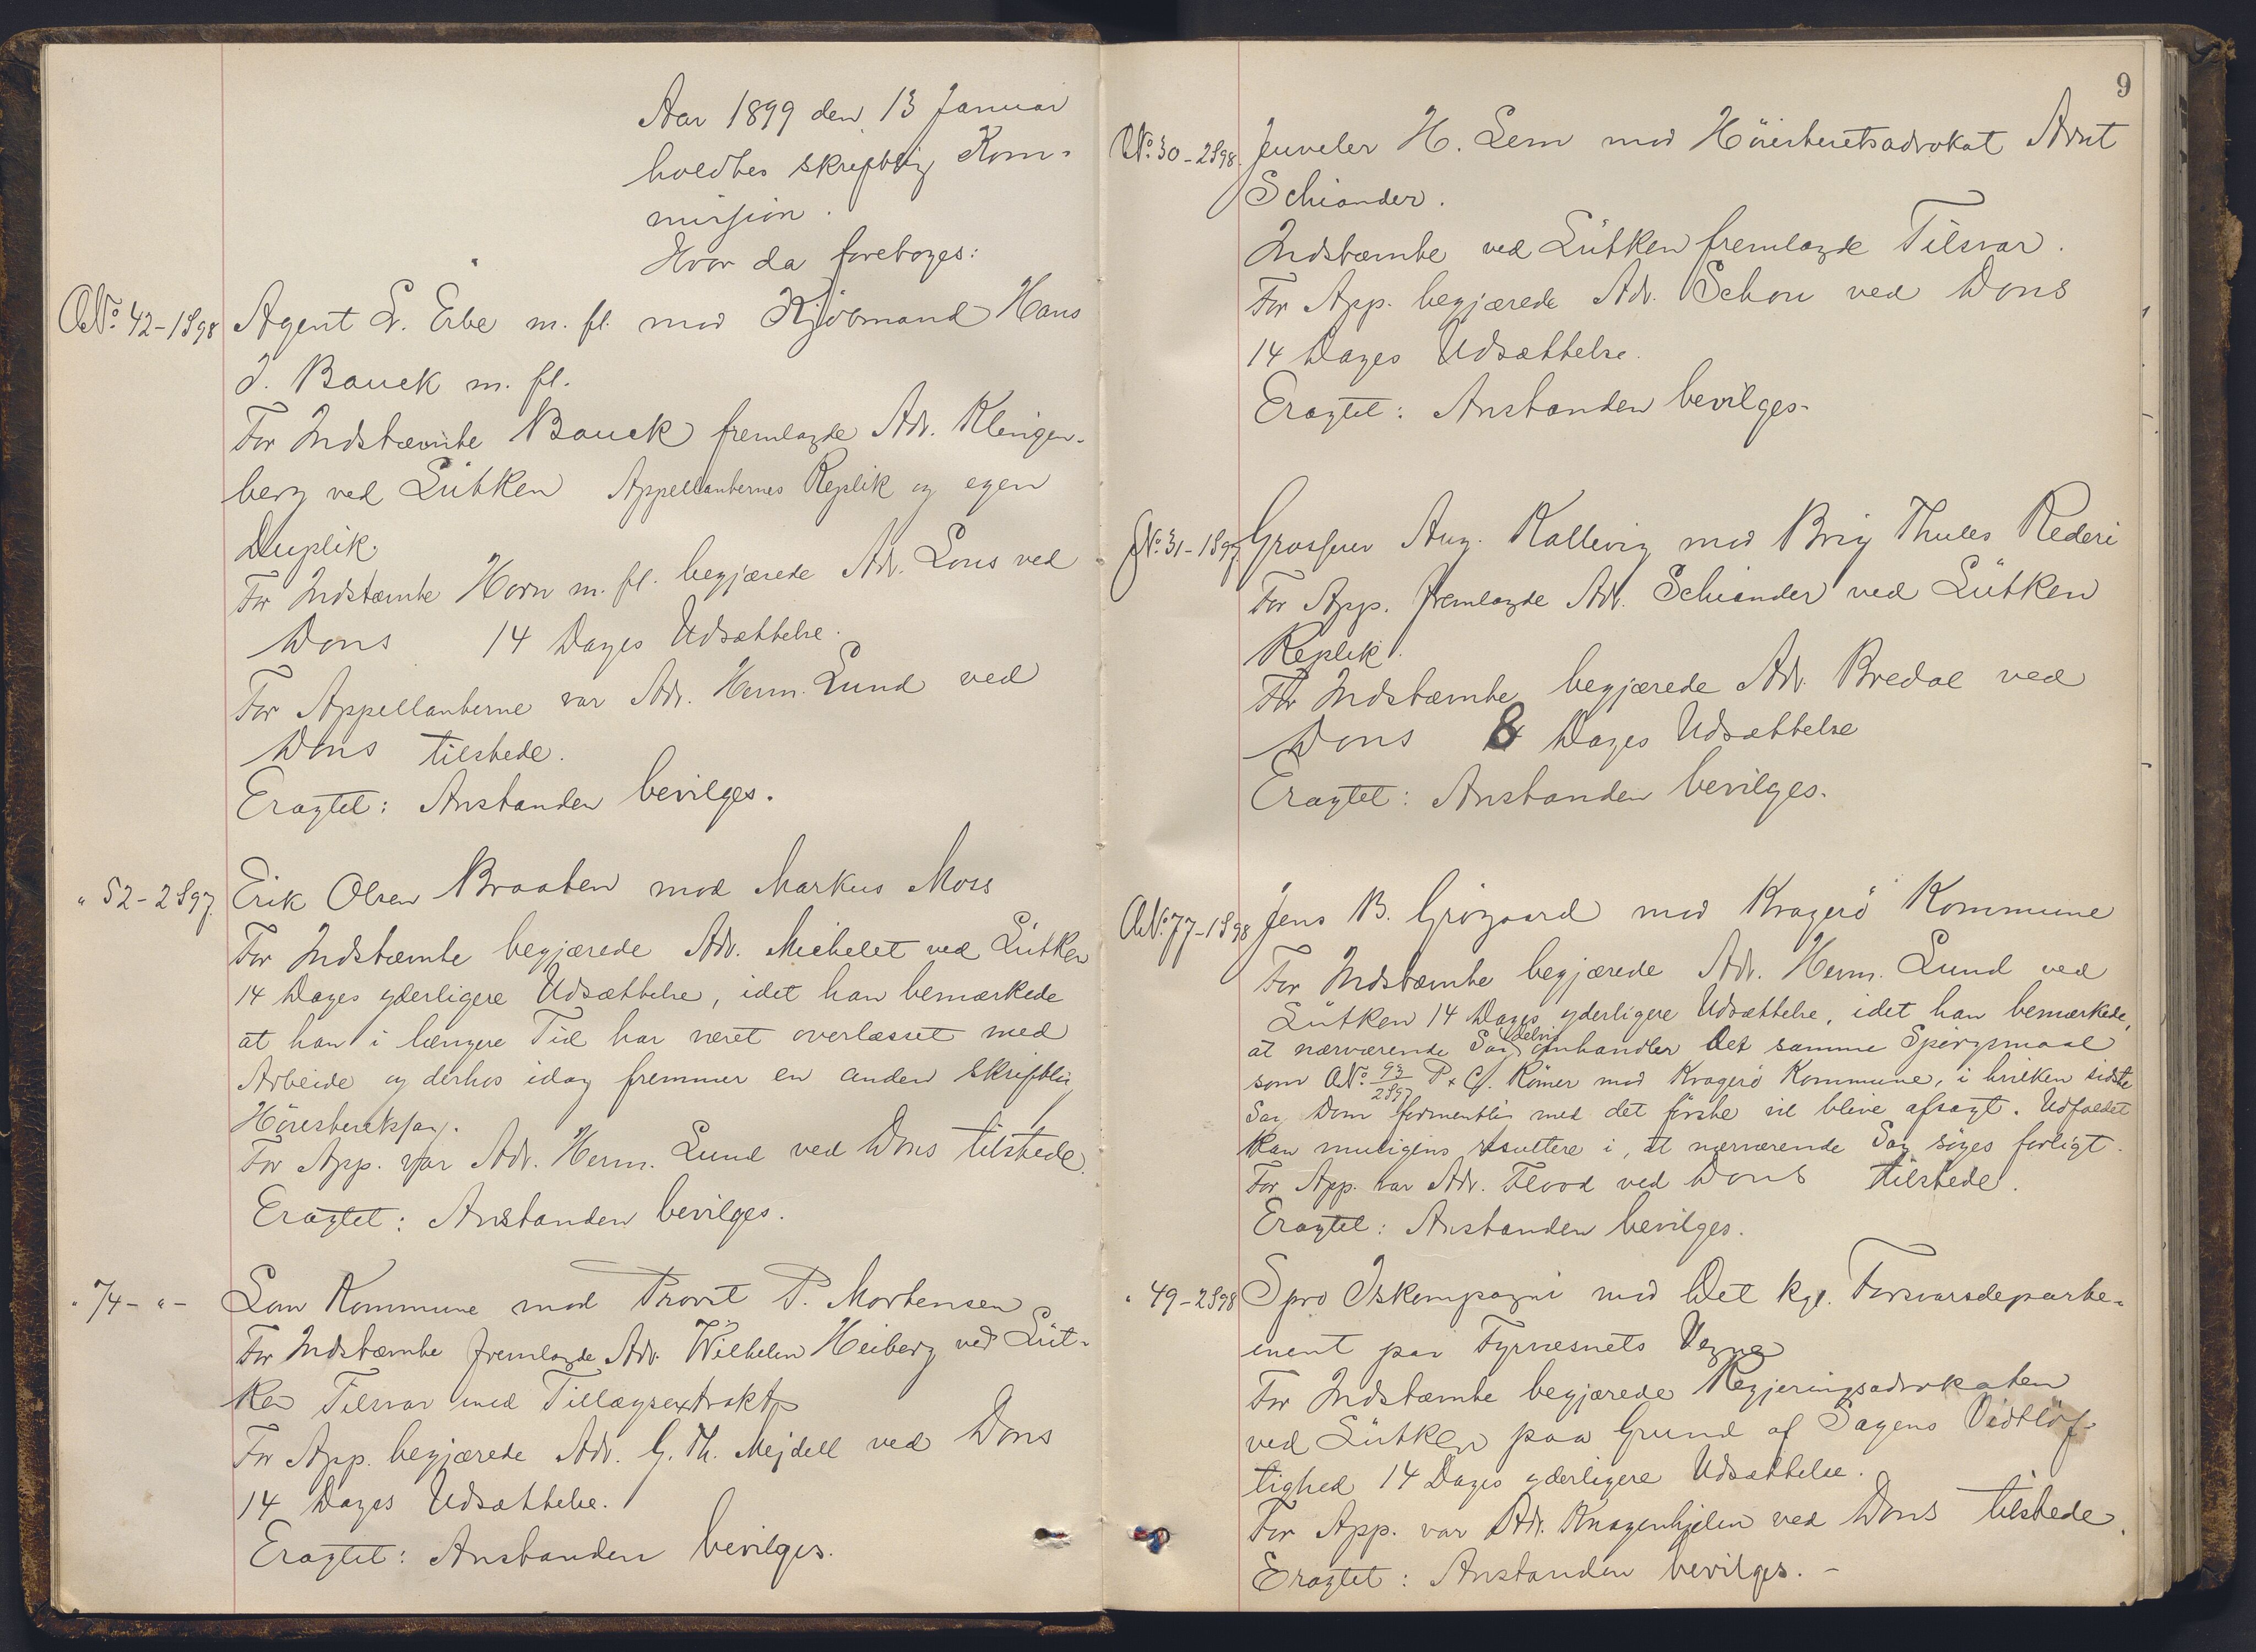 Aar 1899 den 13 Januar
holdtes skriftlig Kom-
mission.
Hvor da foretoges:
A.No. 42-1898 Agent L. Erbe m. fl. mod Kjøbmand Hans
J. Bauck m. fl.
For Indstævnte Bauck fremlagde Adv. Klingen-
berg ved Lütken Appellanternes Replik og egen
Duplik.
For Indstævnte Horn m. fl. begjærede Adv. Lous ved
Dons 14 Dages Udsættelse.
For Appellanterne var Adv. Herm. Lund ved
Dons tilstede.
Eragtet: Anstanden bevilges.
" 52-2S97. Erik Olsen Braaten mod Markus Moss
For Indstævnte begjærede Adv. Michelet ved Lütken
14 Dages yderligere Udsættelse, idet han bemærkede
at han i længere Tid har været overlæsset med
Arbeide og derhos idag fremmer en anden skriftlig
Höiesteretssag.
For App. var Adv. Herm. Lund ved Dons tilstede.
Eragtet: Anstanden bevilges.
" 74- " - Lom Kommune mod Provst P. Mortensen
For Indstævnte fremlagde Adv. Wilhelm Heiberg ved Lüt-
ken Tilsvar med Tillægsextrakt
For App. begjærede Adv. G. Th. Mejdell ved Dons
14 Dages Udsættelse.
Eragtet: Anstanden bevilges.
9
A.No. 30-2S98. Juveler H. Lem mod Höiesteretsadvokat Arnt
Schiander.
Indstævnte ved Lütken fremlagde Tilsvar.
For App. begjærede Adv. Schou ved Dons
14 Dages Udsættelse.
Eragtet: Anstanden bevilges.
No. 31-1S97. Grosserer Aug. Kallevig mod Brig Thules Rederi
For App. fremlagde Adv. Schiander ved Lütken
Replik.
For Indstævnte begjærede Adv. Bredal ved
Dons 8 Dages Udsættelse
Eragtet: Anstanden bevilges.
A.No. 77-1S98 Jens B. Grögaard mod Kragerö Kommune
For Indstævnte begjærede Adv. Herm. Lund ved
Lütken 14 Dages yderligere Udsættelse, idet han bemærkede,
at nærværende Sag delvis omhandler det samme Spörgsmaal
som A.No. 93/2S97 P. & Chr. Römer mod Kragerö Kommune, i hvilken sidste
Sag Dom formentlig med det förste vil blive afsagt. Udfaldet
kan muligens resultere i, at nærværende Sag söges forligt.
For App. var Adv. Flood ved Dons tilstede.
Eragtet: Anstanden bevilges.
" 49-2S98 Spro Iskompagni mod Det kgl. Forsvarsdeparte-
ment paa Fyrvæsnets Vegne
For Indstævnte begjærede Regjeringsadvokaten
ved Lütken paa Grund af Sagens Vidtlöf-
tighed 14 Dages yderligere Udsættelse.
For App. var Adv. Knagenhjelm ved Dons tilstede.
Eragtet: Anstanden bevilges. -